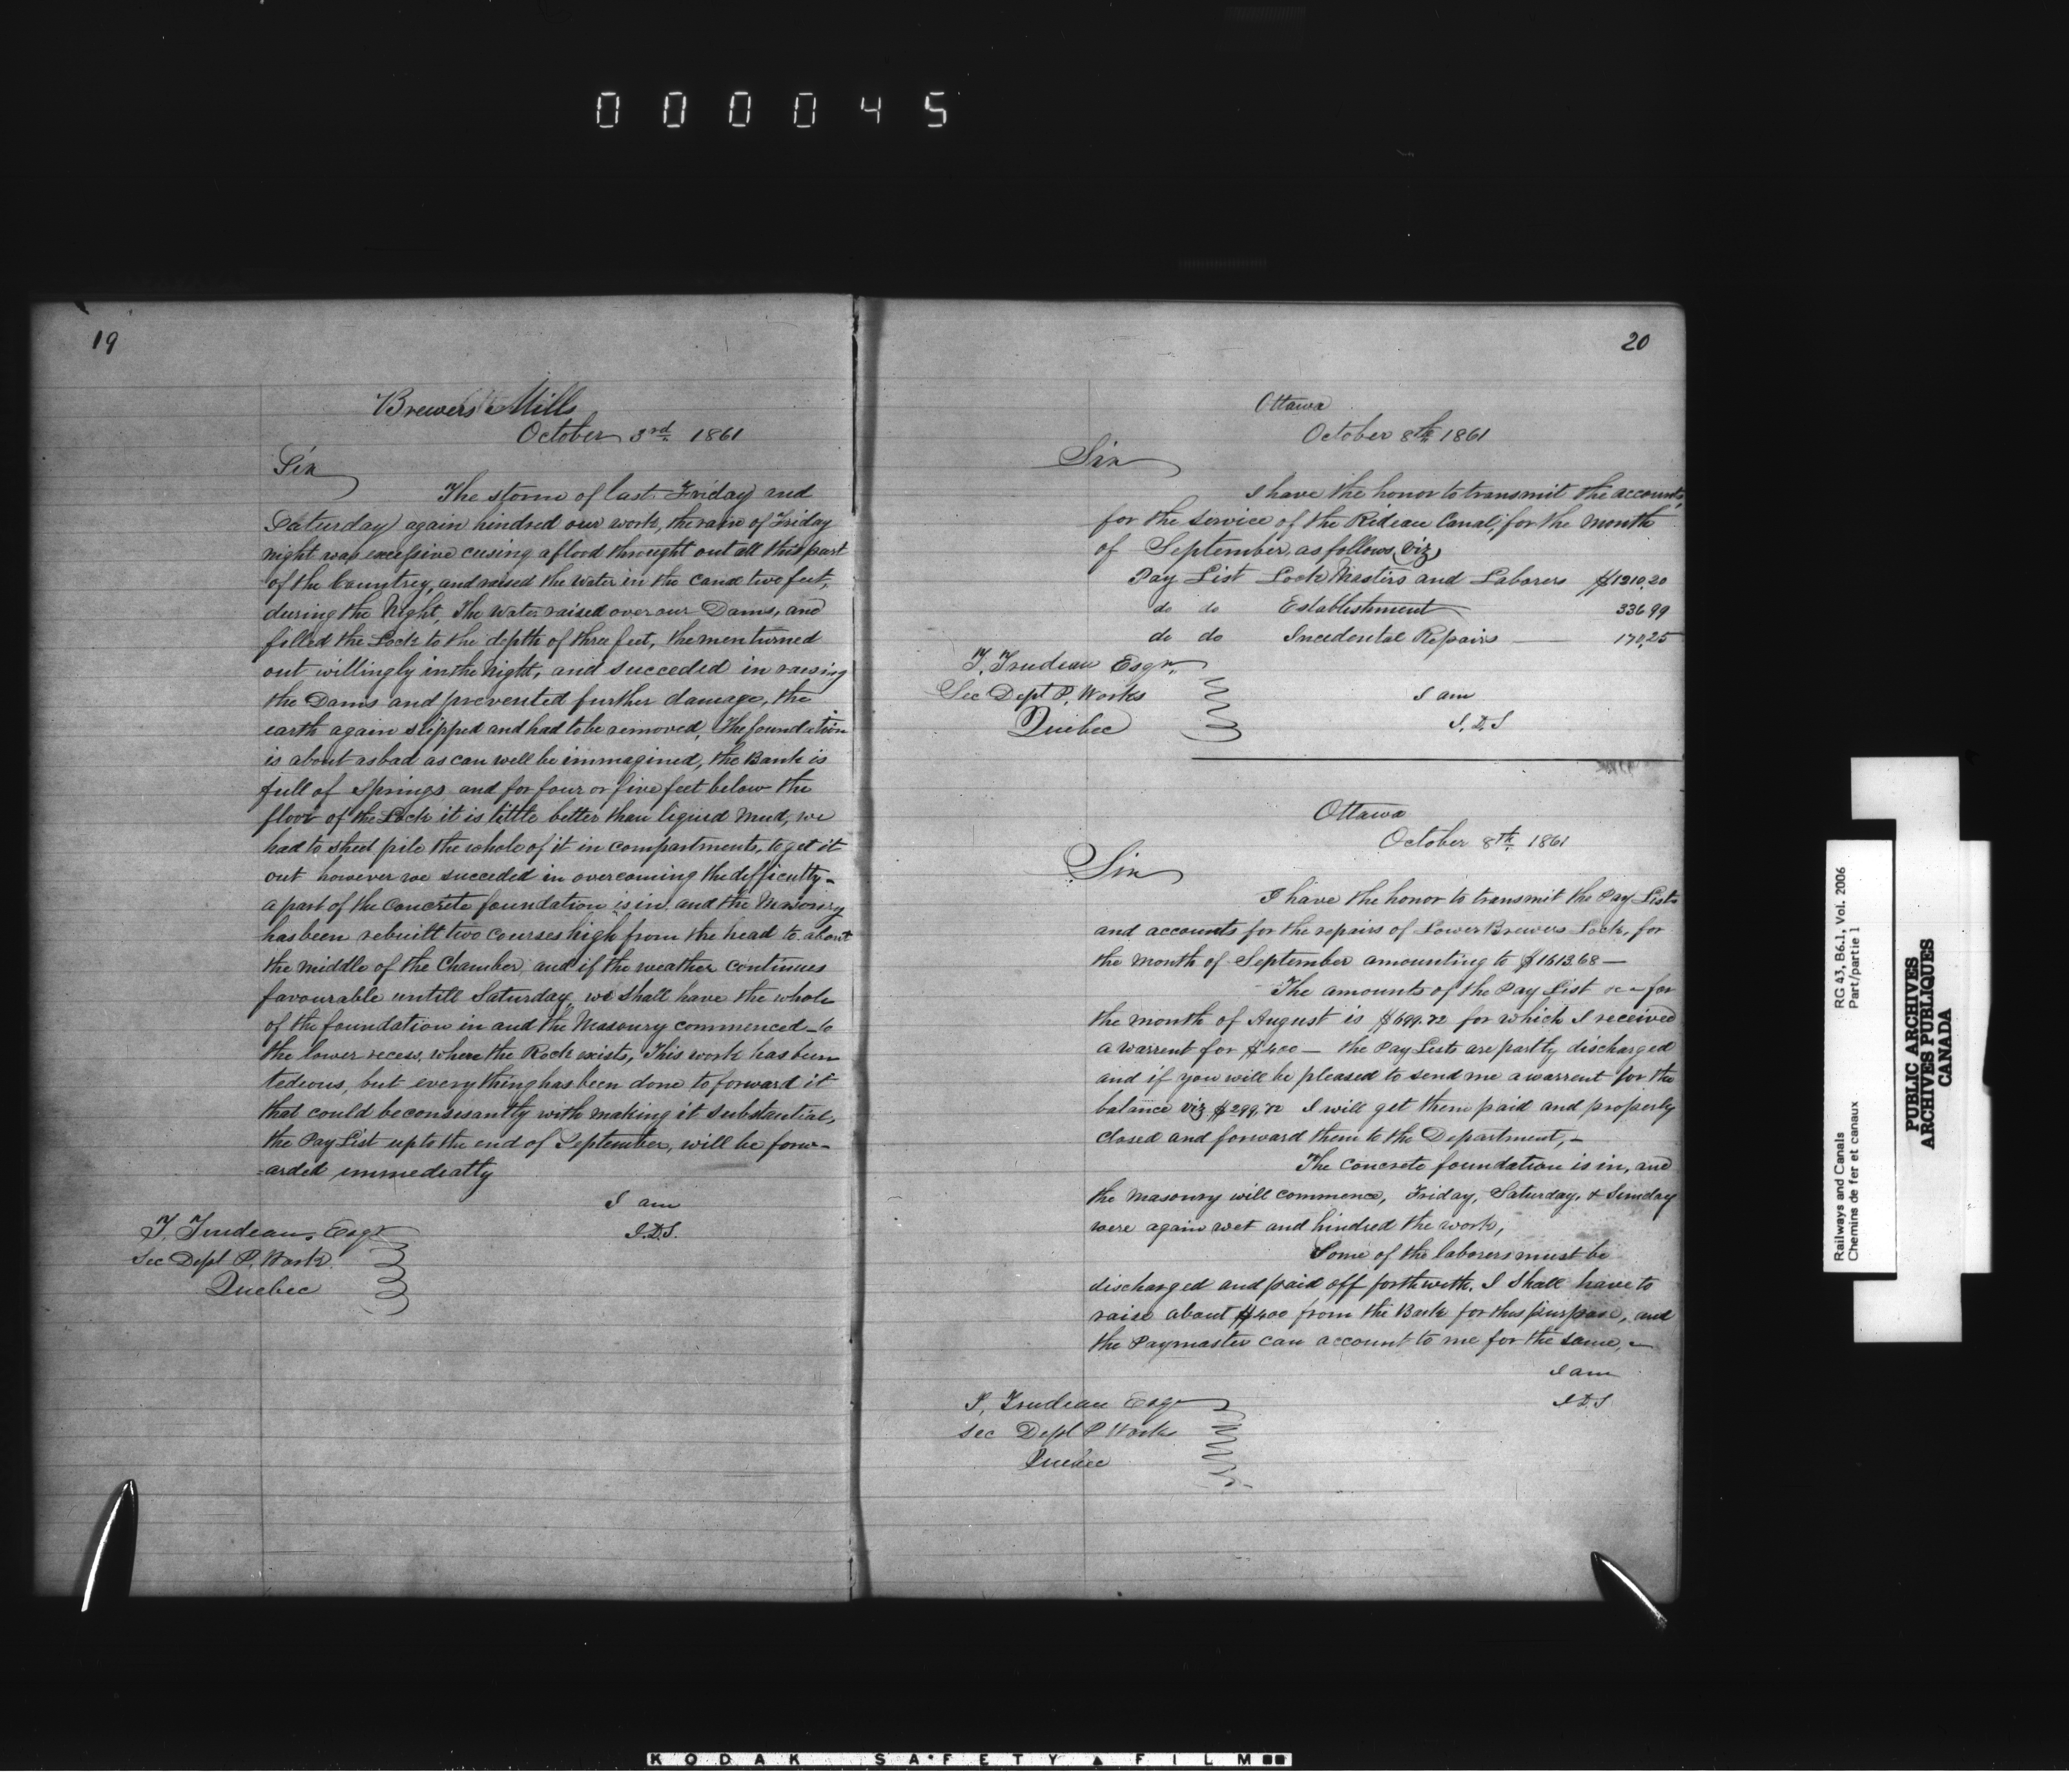 000045
19
Brewers Mills
October 3rd 1861
Sir
The storm of last Friday and
Saturday again hindred our work, the rain of Friday
night was excessive cusing a flood throught out all this part
of the Countrey, and raised the water in the canal two feet,
during the Night, The water raised over our Dams, and
filled the Lock to the depth of three feet, the men turned
out willingly in the Night, and succeded in raising
the Dams and prevented further damage, the
earth again slipped and had to be removed, The foundation
is about as bad as can well be immagined, the Bank is
full of Springs and for four or five feet below the
floor of the Lock it is little better than liquid Mud, we
had to sheet pile the whole of it in compartments, to get it
out however we succeded in overcoming the difficulty -
a part of the Concrete foundation is in, and the Masonry
has been rebuilt two courses high from the head to about
the middle of the Chamber, and if the weather continues
favourable untill Saturday, we shall have the whole
of the foundation in and the Masonry commenced to
the lower recess, where the Rock exists, This work has been
tedious, but everything has been done to forward it
that could be consistantly with making it substantial,
the Pay List up to the end of September, will be forw-
-arded immediatly
I am
J.D.S.
T. Trudeau, Esqr
Sec Dept P. Work
Quebec
20
Ottawa
October 8th 1861
Sir
I have the honor to transmit the accounts,
for the service of the Rideau Canal, for the month
of September, as follows, viz,
Pay List Lock Masters and Laborers $1210.20
do do Establishment 336.99
do do Incedental Repairs — 170.25
T. Trudeau Esqr,
Sec Dept P. Works
Quebec
I am
J.D.S
Ottawa
October 8th 1861
Sir
I have the honor to transmit the Pay Lists
and accounts for the repairs of Lower Brewers Lock, for
the month of September amounting to $1613.68 —
The amounts of the Pay List &c - for
the month of August is $699.72 for which I received
a warrent for $400 — the Pay Lists are partly discharged
and if you will be pleased to send me a warrent for the
balance viz $299.72 I will get them paid and properly
closed and forward them to the Department, -
The concrete foundation is in, and
the Masonry will commence, Friday, Saturday, & Sunday
were again wet and hindred the work,
Some of the laborers must be
discharged and paid off forthwith. I shall have to
raise about $400 from the Bank for this purpose, and
the Paymaster can account to me for the same, -
I am
J.D.S
T. Trudeau Esqr
Sec Dept P Works
Quebec
RG 43, B6.1, Vol. 2006
Part/partie 1
Railways and Canals
Chemins de fer et canaux
PUBLIC ARCHIVES
ARCHIVES PUBLIQUES
CANADA
KODAK SAFETY FILM